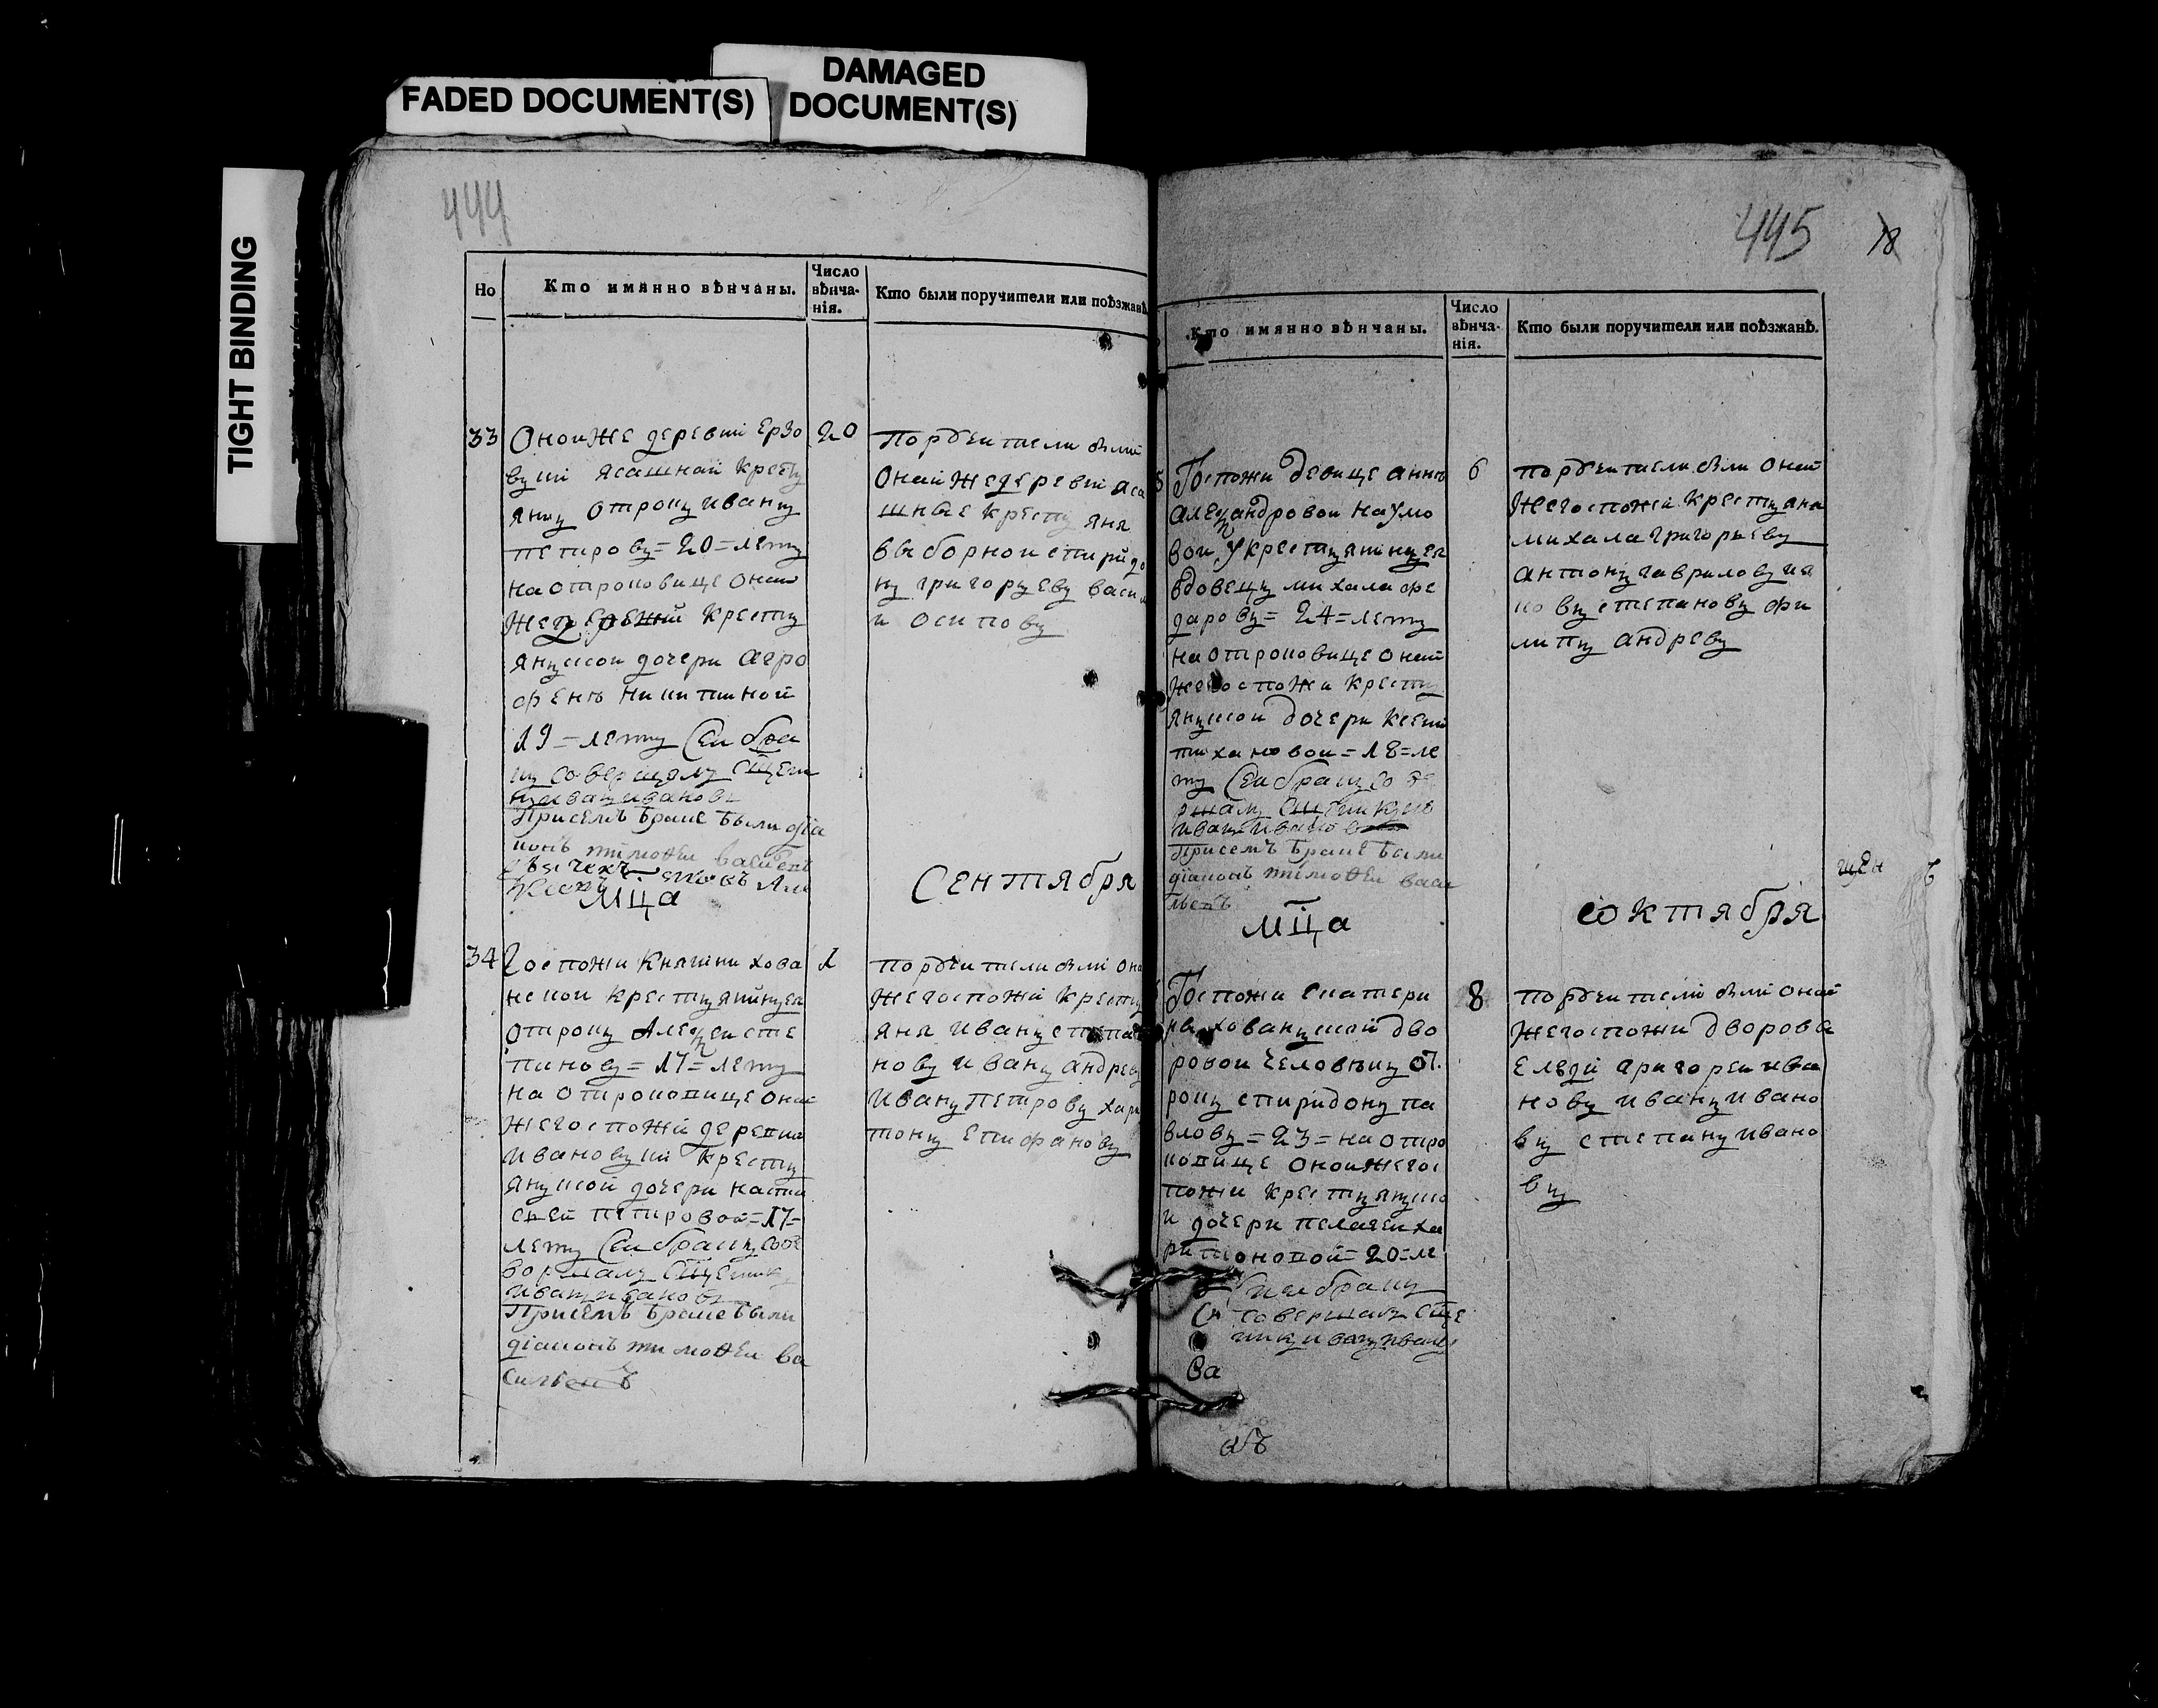 FADED DOCUMENT(S)
DAMAGED
DOCUMENT(S)
TIGHT BINDING
444
Но
Кто имянно вѣнчаны.
Число
вѣнча-
нія.
Кто были поручители или поѣзжанѣ
33
Оной же деревни Ерзо
вки ясашнай кресть
янину отроку ивану
петрову = 20 = лету
на отроковице оной
же
кресть
янской дочери агро
фене никитиной
19 = лету Сей бра
иванову
При семъ браке были
тимоѳеи
20
поручители были
онай же деревни яса
шные крестьяня
выборной спиридо
ну григорьеву васи
и осипову
Мца
Сентября
34
Госпожи Княгини хова
нской крестьянину
отроку Алексеи сте
панову = 17 = лету
на отроковице оной
же госпожи деревни
ивановки кресть
янской дочери наста
сьей петровой = 17 =
лету Сей браку сове
ивану иванову
При семъ браке были
діаконъ тимоѳеи ва
сильевъ
1
поручители были она
же госпожи кресть
яня ивану степа
нову ивану андрееву
ивану петрову хари
тону епифанову
445
18
Кто имянно вѣнчаны.
Число
вѣнча-
нія.
Кто были поручители или поѣзжанѣ.
5
Госпожи девице анны
александровой наумо
вой крестьянину
вдовецу михаила фе
дорову = 24 = лету
на отроковице оной
же госпожи кресть
янской дочери ксени
тихановой = 18 = ле
ту Сей браку со ве
При семъ браке были
діаконъ тимоѳеи васи
льевъ
6
поручители были оной
же госпожи крестьяня
михала григорьеву
антону гаврилову
степанову фи
липу андрееву
Мца
октября
Госпожи екатери
ны хованской дво
ровой человеку от
року спиридону па
влову = 23 = на отро
ковице оной же гос
пожи крестьянско
и дочери пелагеи ха
ритоновой = 20 = ле
браку
совершалъ
ивану ивано
ва
8
поручители были оной
же госпожи дворовы
е люди григореи ива
нову ивану ивано
ву степану ивано
ву